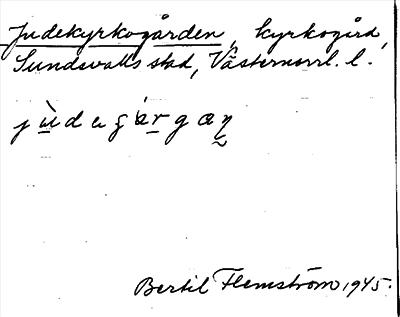 Judekyrkogården, kyrkogård,
Sundsvalls stad, Västernorrl. l.
Bertil Flemström 1945.